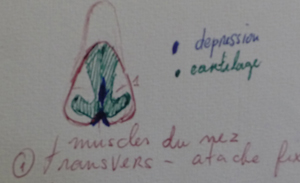 depression
cartilage
1
muscles du nez
① transvers - atache fix